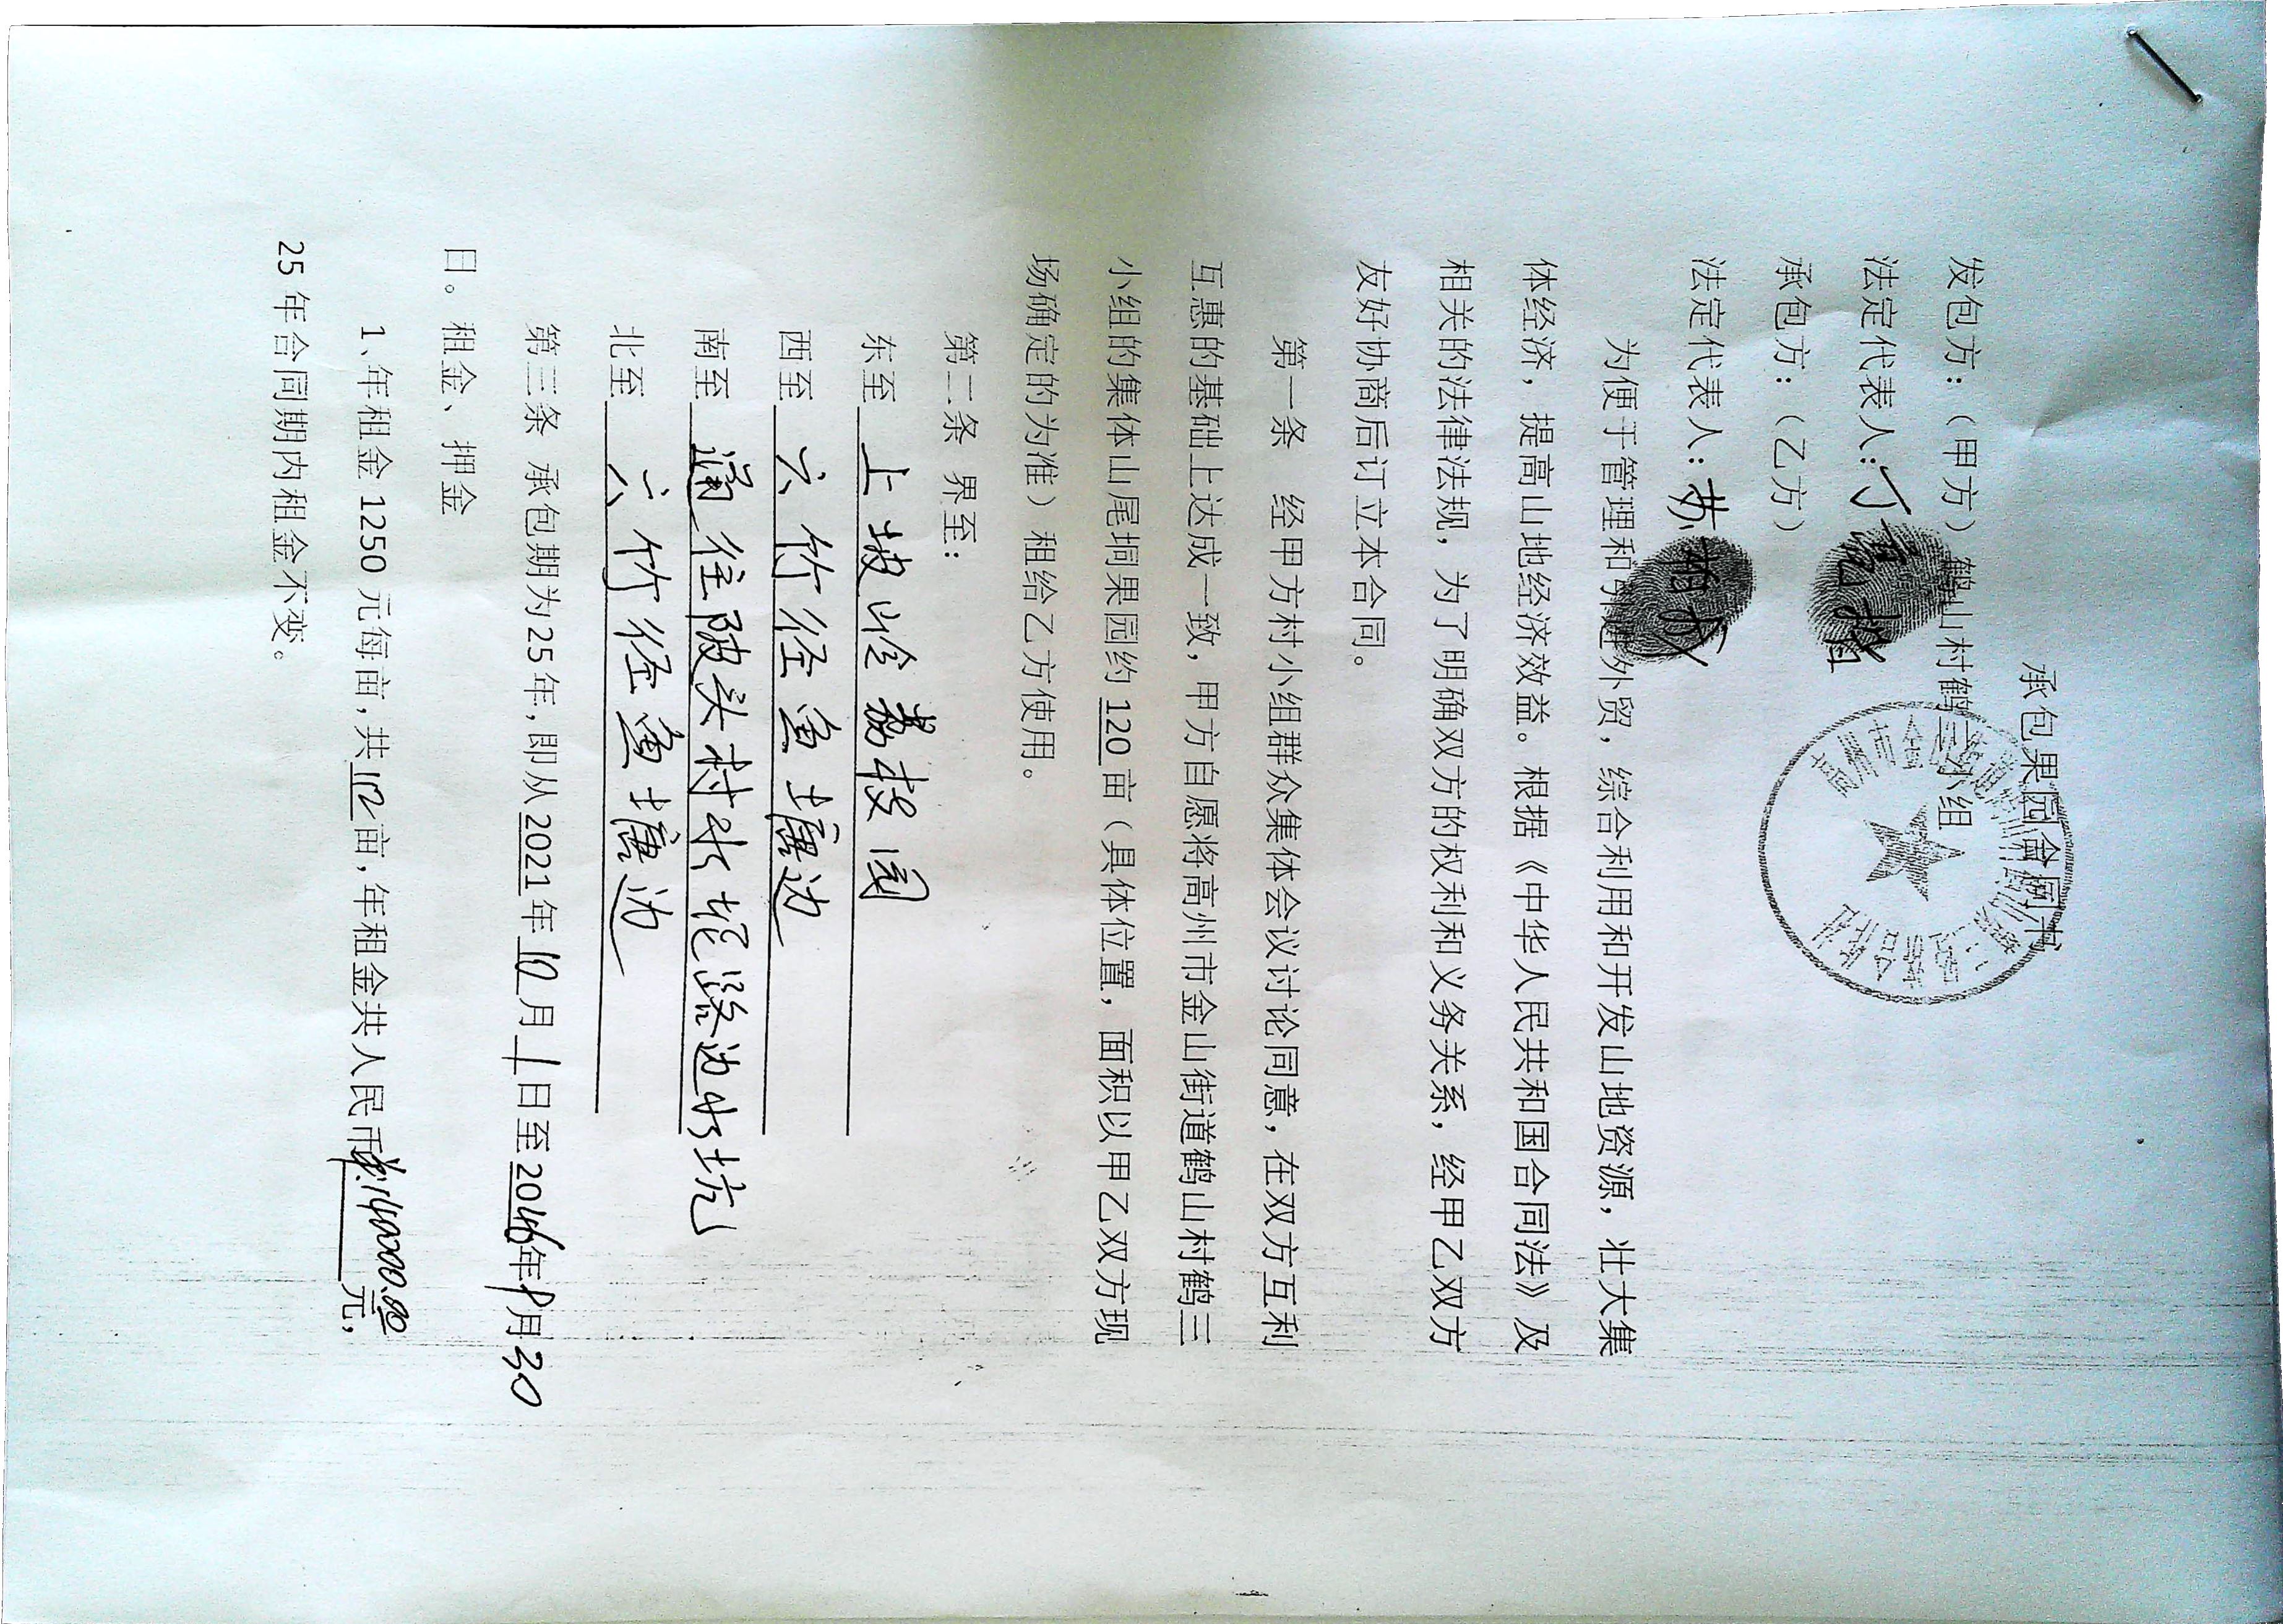 承包果园合同书
发包方：（甲方）鹤山村鹤三小组
法定代表人：丁
承包方：（乙方）
法定代表人：苏
为便于管理和引进外贸，综合利用和开发山地资源，壮大集
体经济，提高山地经济效益。根据《中华人民共和国合同法》及
相关的法律法规，为了明确双方的权利和义务关系，经甲乙双方
友好协商后订立本合同。
第一条 经甲方村小组群众集体会议讨论同意，在双方互利
互惠的基础上达成一致，甲方自愿将高州市金山街道鹤山村鹤三
小组的集体山尾垌果园约120亩（具体位置，面积以甲乙双方现
场确定的为准）租给乙方使用。
第二条 界至：
东至 上坡岭荔枝园
西至 六竹径鱼塘边
南至 通往陂头村水泥路边水坑
北至 六竹径鱼塘边
第三条 承包期为25年，即从2021年10月1日至2046年9月30
日。租金、押金
1、年租金1250元每亩，共112亩，年租金共人民币140000.00元，
25年合同期内租金不变。